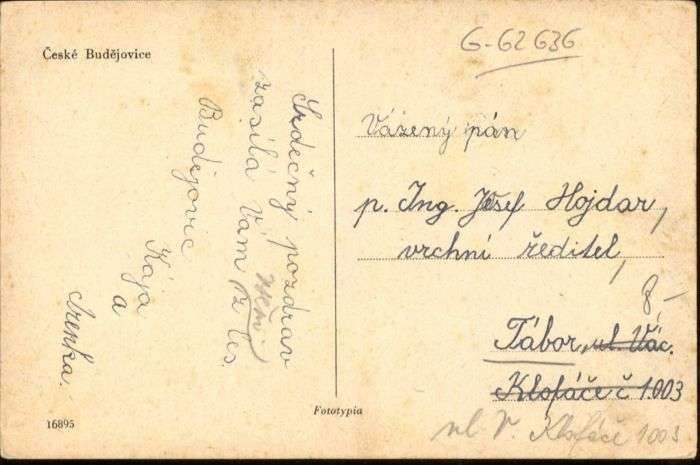 České Budějovice
G-62636
Srdečný pozdrav
zasílá Vám z Čes.
Budějovic
Kája
a
Irenka.
Vážený pán
p. Ing. Josef Hojdar,
vrchní ředitel,
8-
Tábor, ul. Vác.
Klofáče č 1.003
ul V. Klofáče 1003
Fototypia
16895